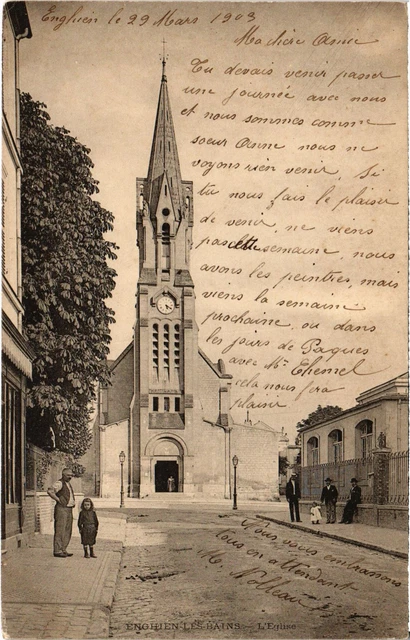 Enghien le 29 Mars 1903
Ma chère Amie
Tu devais venir passer
une journée avec nous
et nous sommes comme
soeur Anne nous ne
voyons rien venir, Si
tu nous fais le plaisir
de venir, ne viens
pas cette semaine, nous
avons les peintres, mais
viens la semaine
prochaine, ou dans
les jours de Paques
avec Mr
cela nous fera
plaisir
Nous vous embrassons
tous en attendant
M.
ENGHIEN-LES-BAINS — L'Eglise